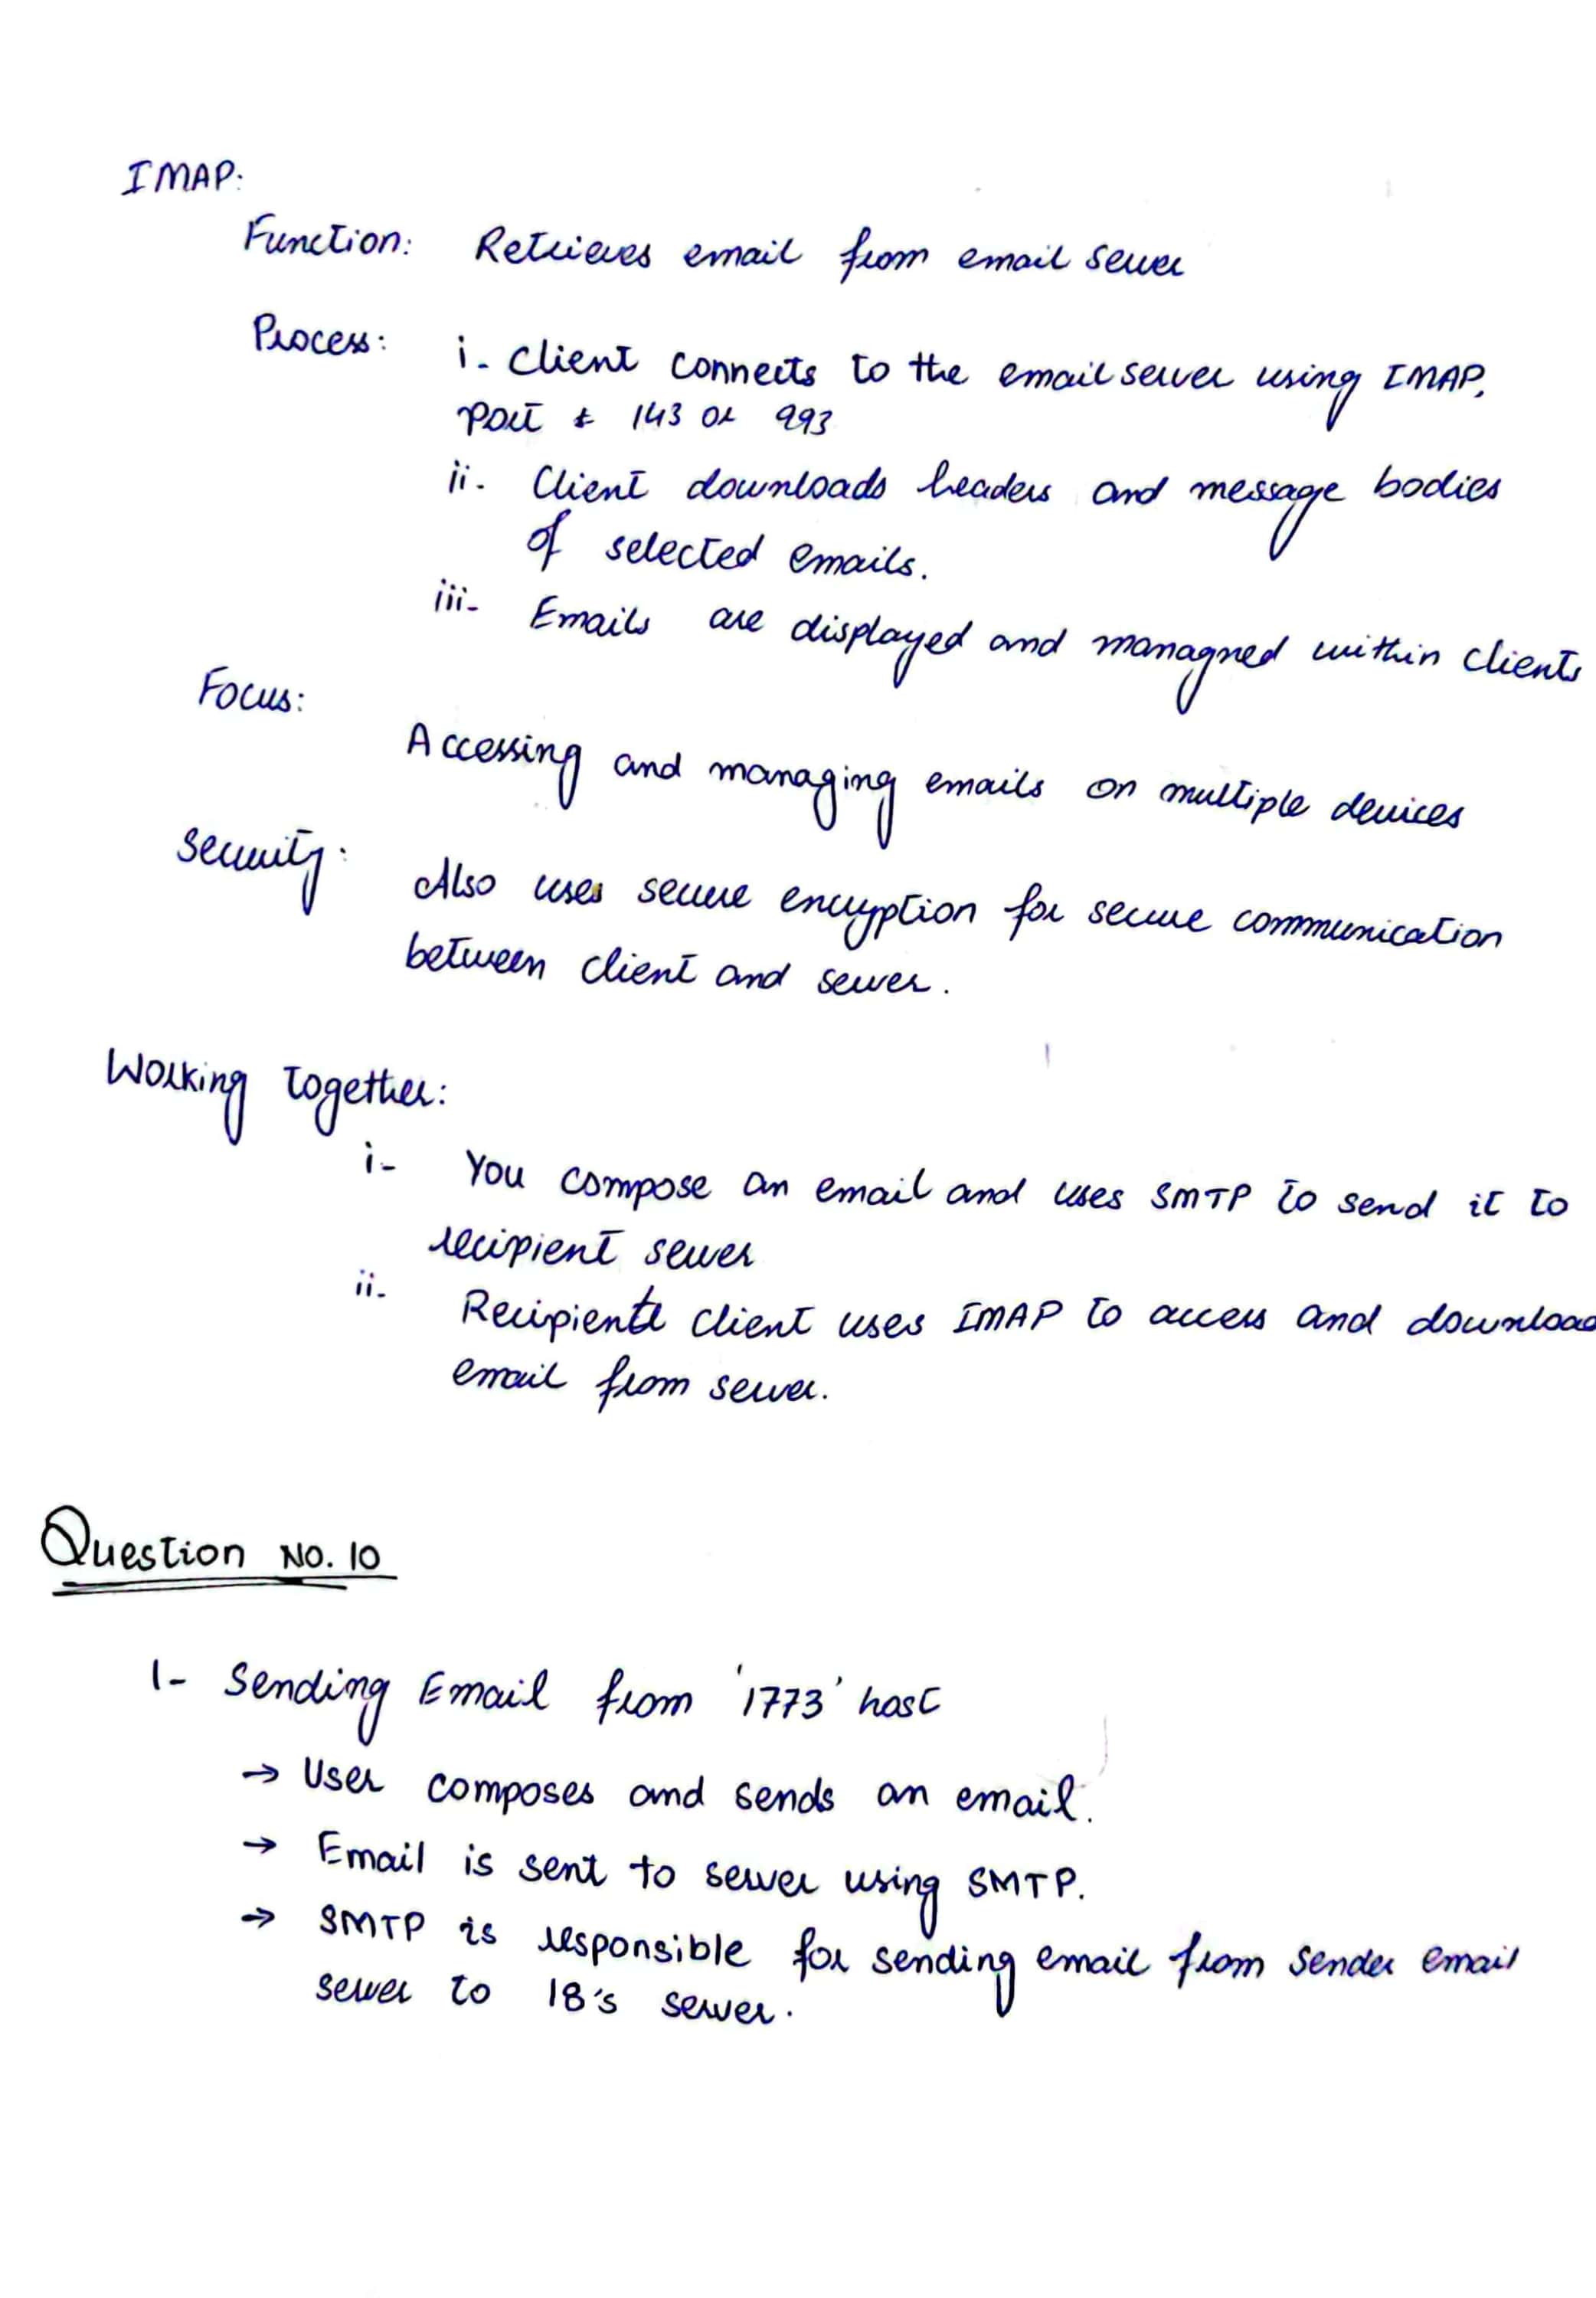 IMAP:
Function: Retrieves email from email server
Process: i- Client connects to the email server using IMAP,
port 143 or 993
ii- Client downloads headers and message bodies
of selected emails.
iii- Emails are displayed and managned within clients
Focus:
Accessing and managing emails on multiple devices
Security:
Also uses secure encryption for secure communication
between client and server.
Working together:
i- You compose an email and uses SMTP to send it to
recipient server
ii- Recipient client uses IMAP to access and download
email from server.
Question No. 10
1- Sending Email from '1773' host
→ User composes and sends an email.
→ Email is sent to server using SMTP.
→ SMTP is responsible for sending email from sender email
server to 18's server.